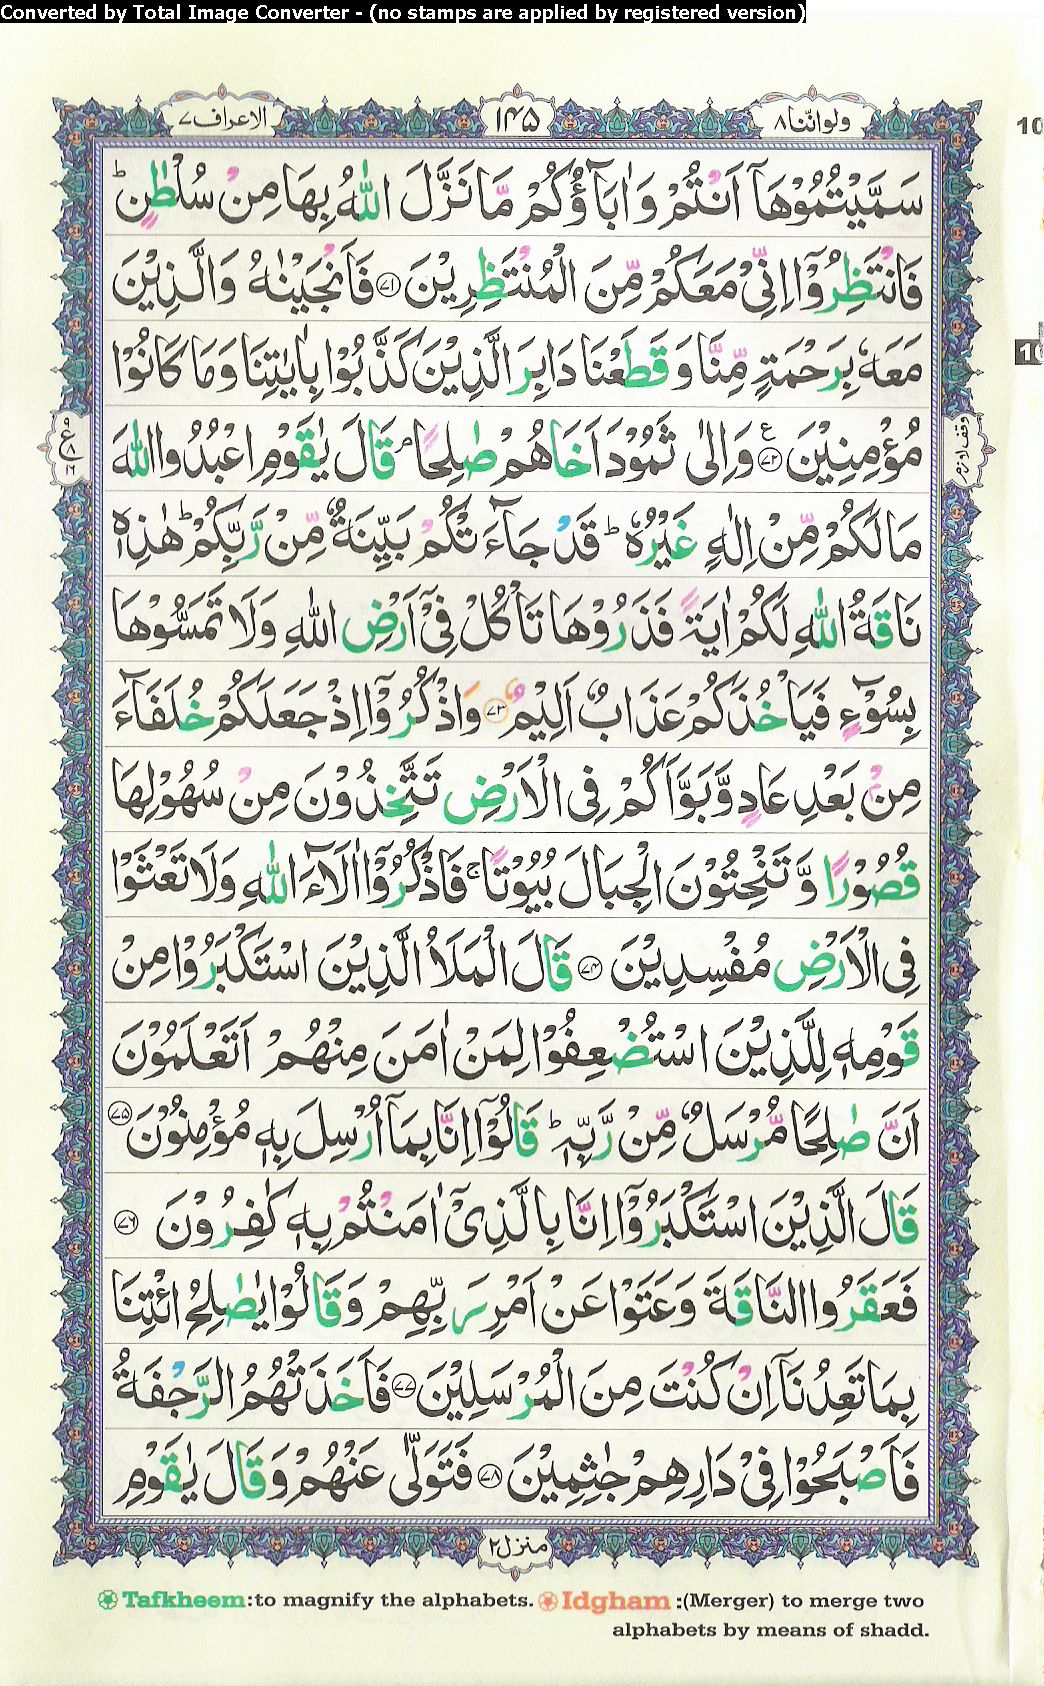 Converted by Total Image Converter - (no stamps are applied by registered version)
ولواننا ٨
١٤٥
الاعراف ٧
سَمَّيْتُمُوْهَآ اَنْتُمْ وَاٰبَآؤُكُمْ مَّا نَزَّلَ اللّٰهُ بِهَا مِنْ سُلْطٰنٍ ؕ
فَانْتَظِرُوْۤا اِنِّىْ مَعَكُمْ مِّنَ الْمُنْتَظِرِيْنَ ﴿٧١﴾ فَاَنْجَيْنٰهُ وَالَّذِيْنَ
مَعَهٗ بِرَحْمَةٍ مِّنَّا وَقَطَعْنَا دَابِرَ الَّذِيْنَ كَذَّبُوْا بِاٰيٰتِنَا وَمَا كَانُوْا
مُؤْمِنِيْنَ ﴿٧٢﴾ ع وَاِلٰى ثَمُوْدَ اَخَاهُمْ صٰلِحًا ۘ قَالَ يٰقَوْمِ اعْبُدُوا اللّٰهَ
مَا لَكُمْ مِّنْ اِلٰهٍ غَيْرُهٗ ؕ قَدْ جَآءَتْكُمْ بَيِّنَةٌ مِّنْ رَّبِّكُمْ ؕ هٰذِهٖ
نَاقَةُ اللّٰهِ لَكُمْ اٰيَةً فَذَرُوْهَا تَاْكُلْ فِىْۤ اَرْضِ اللّٰهِ وَلَا تَمَسُّوْهَا
بِسُوْٓءٍ فَيَاْخُذَكُمْ عَذَابٌ اَلِيْمٌ ﴿٧٣﴾ وَاذْكُرُوْۤا اِذْ جَعَلَكُمْ خُلَفَآءَ
مِنْۢ بَعْدِ عَادٍ وَّبَوَّاَكُمْ فِى الْاَرْضِ تَتَّخِذُوْنَ مِنْ سُهُوْلِهَا
قُصُوْرًا وَّتَنْحِتُوْنَ الْجِبَالَ بُيُوْتًا ۚ فَاذْكُرُوْۤا اٰلَآءَ اللّٰهِ وَلَا تَعْثَوْا
فِى الْاَرْضِ مُفْسِدِيْنَ ﴿٧٤﴾ قَالَ الْمَلَاُ الَّذِيْنَ اسْتَكْبَرُوْا مِنْ
قَوْمِهٖ لِلَّذِيْنَ اسْتُضْعِفُوْا لِمَنْ اٰمَنَ مِنْهُمْ اَتَعْلَمُوْنَ
اَنَّ صٰلِحًا مُّرْسَلٌ مِّنْ رَّبِّهٖ ؕ قَالُوْۤا اِنَّا بِمَآ اُرْسِلَ بِهٖ مُؤْمِنُوْنَ ﴿٧٥﴾
قَالَ الَّذِيْنَ اسْتَكْبَرُوْۤا اِنَّا بِالَّذِىْۤ اٰمَنْتُمْ بِهٖ كٰفِرُوْنَ ﴿٧٦﴾
فَعَقَرُوا النَّاقَةَ وَعَتَوْا عَنْ اَمْرِ رَبِّهِمْ وَقَالُوْا يٰصٰلِحُ ائْتِنَا
بِمَا تَعِدُنَآ اِنْ كُنْتَ مِنَ الْمُرْسَلِيْنَ ﴿٧٧﴾ فَاَخَذَتْهُمُ الرَّجْفَةُ
فَاَصْبَحُوْا فِىْ دَارِهِمْ جٰثِمِيْنَ ﴿٧٨﴾ فَتَوَلّٰى عَنْهُمْ وَقَالَ يٰقَوْمِ
وقف لازم
٩
ع
٨
١٦
منزل ٢
Tafkheem:to magnify the alphabets. Idgham :(Merger) to merge two
alphabets by means of shadd.